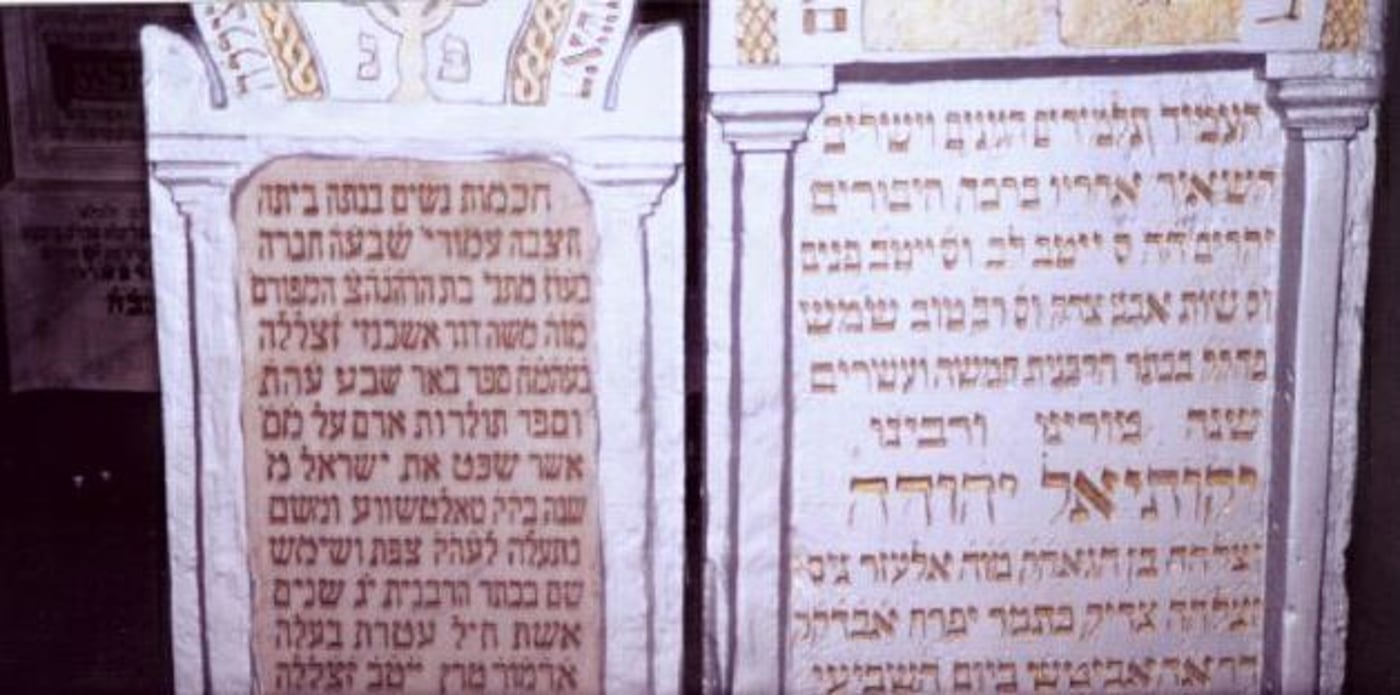 פ נ
חכמות נשים בנתה ביתה
חצבה עמודי' שבעה חברה
בעוז מתני' בת הרהגהצ המפורס
מוה משה דוד אשכנזי זצללה
בעהמח ספר באר שבע עהת
וספר תולדות אדם על מס
אשר שפט את ישראל מ
שנה בקק טאלטשווע ומשם
נתעלה לעהק צפת ושימש
שם בכתר הרבנית יג שנים
אשת חיל עטרת בעלה
אדמור מרן ייטב זצללה
העמיד תלמידים הגונים וישרים
השאיר אחריו ברכה חיבורים
יקרים הה ס ייטב לב וס ייטב פנים
וס שות אבני צדק וס רב טוב שימש
בכתר הרבנות חמשה ועשרים
שנה מורינו ורבינו
יקותיאל יהודה
זצלהה בן הגאהק מוה אלעזר ניס
זצלהה צדיק כתמר יפרח אבדקק
ביום השביעי